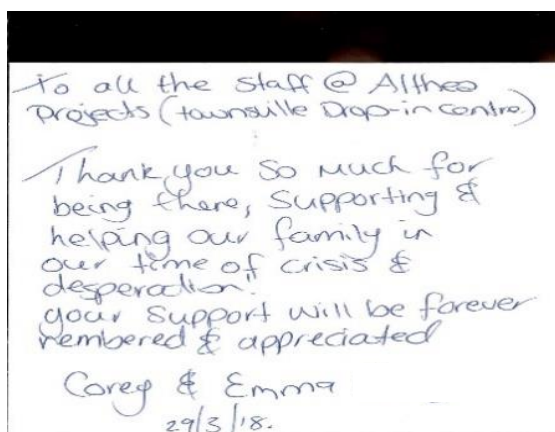 To all the Staff @ Althea
Projects (townsville Drop-in centre)
Thank you so much for
being there, Supporting &
helping our family in
our time of crisis &
desperation.
your support will be forever
rembered & appreciated
Corey & Emma
29/3/18.